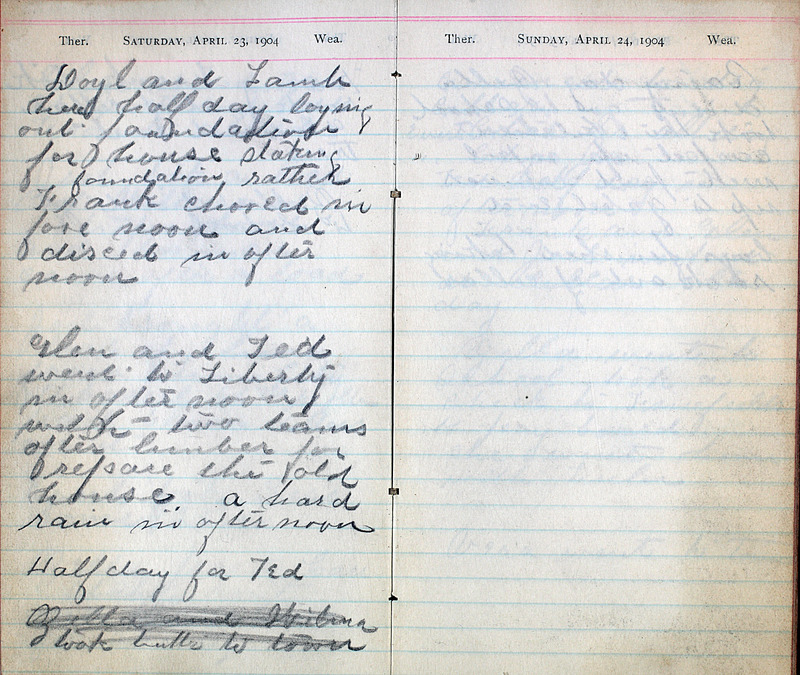 Ther. SATURDAY, APRIL 23, 1904 Wea.
Doyl and Lamb
here half day laying
out foundation
for house staking
foundation rather
Frank chored in
fore noon and
disced in after
noon
Glen and Ted
went to Liberty
in after noon
with two teams
after lumber for
repare the old
house a hard
rain in after noon
Half day for Ted
Zella and Wilma
took butter to town
Ther. SUNDAY, APRIL 24, 1904 Wea.